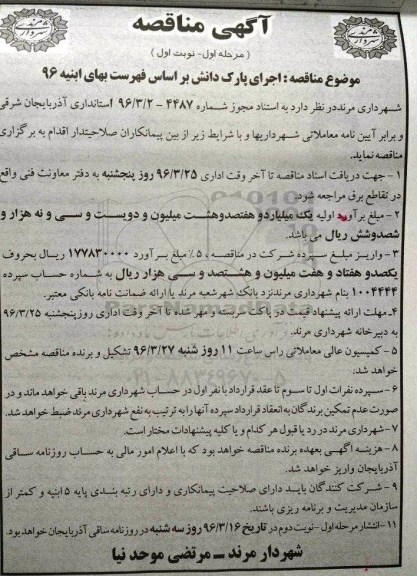 آگهی مناقصه
( مرحله اول- نوبت اول )
موضوع مناقصه : اجرای پارک دانش بر اساس فهرست بهای ابنیه ۹۶
شهرداری مرند در نظر دارد به استناد مجوز شماره ۴۴۸۷ - ۹۶/۳/۲ استانداری آذربایجان شرقی
و برابر آیین نامه معاملاتی شهرداریها و با شرایط زیر از بین پیمانکاران صلاحیتدار اقدام به برگزاری
مناقصه نماید.
۱ - جهت دریافت اسناد مناقصه تا آخر وقت اداری ۹۶/۳/۲۵ روز پنجشنبه به دفتر معاونت فنی واقع
در تقاطع برق مراجعه شود.
۲ - مبلغ برآورد اولیه یک میلیارد و هفتصد و هشت میلیون و دویست و سی و نه هزار و
شصد و شش ریال می باشد.
۳ - واریز مبلغ سپرده شرکت در مناقصه ، ۵٪ مبلغ برآورد ۱۷۷۸۳۰۰۰۰ ریال بحروف
یکصد و هفتاد و هفت میلیون و هشتصد و سی هزار ریال به شماره حساب سپرده
۱۰۰۴۴۴۴ بنام شهرداری مرند نزد بانک شهر شعبه مرند یا ارائه ضمانت نامه بانکی معتبر.
۴ـ مهلت ارائه پیشنهاد قیمت در پاکت دربسته و مهر شده تا آخر وقت اداری روز پنجشنبه ۹۶/۳/۲۵
به دبیرخانه شهرداری مرند.
۵ - کمیسیون عالی معاملاتی راس ساعت ۱۱ روز شنبه ۹۶/۳/۲۷ تشکیل و برنده مناقصه مشخص
خواهد شد.
۶ - سپرده نفرات اول تا سوم تا عقد قرارداد با نفر اول در حساب شهرداری مرند باقی خواهد ماند و در
صورت عدم تمکین برندگان به انعقاد قرارداد سپرده آنها را به ترتیب به نفع شهرداری مرند ضبط خواهد شد.
۷ - شهرداری مرند در رد یا قبول هر کدام و یا کلیه پیشنهادات مختار است.
۸ - هزینه آگهی بعهده برنده مناقصه خواهد بود که با اعلام امور مالی به حساب روزنامه ساقی
آذربایجان واریز خواهد شد.
۹ - شرکت کنندگان باید دارای صلاحیت پیمانکاری و دارای رتبه بندی پایه ۵ ابنیه و کمتر از
سازمان مدیریت و برنامه ریزی باشند.
۱۱- انتشار مرحله اول - نوبت دوم در تاریخ ۹۶/۳/۱۶ روز سه شنبه در روزنامه ساقی آذربایجان خواهد بود.
شهردار مرند ـ مرتضی موحد نیا